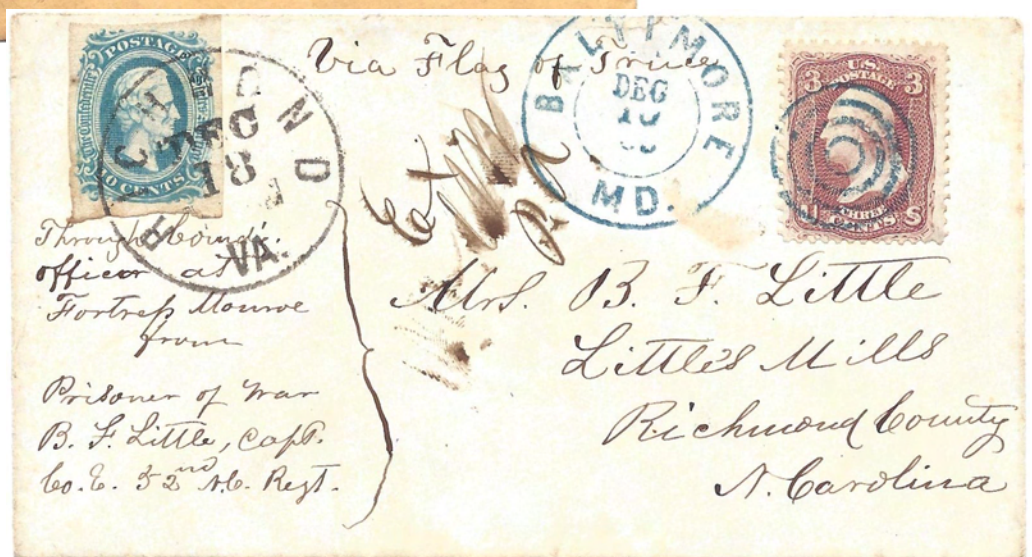 POSTAGE
The Confederate
10 CENTS
RICHMOND
DEC
18
VA.
Via Flag of Truce
BALTIMORE
DEC
MD.
U.S.
POSTAGE
3 3
THREE
CENTS
Ex
Through Comd'g.
officer at
Fortress Monroe
from
Prisoner of War
B. F. Little, Capt.
Co. E. 52nd N.C. Regt.
Mrs. B. F. Little
Little's Mills
Richmond County
N. Carolina